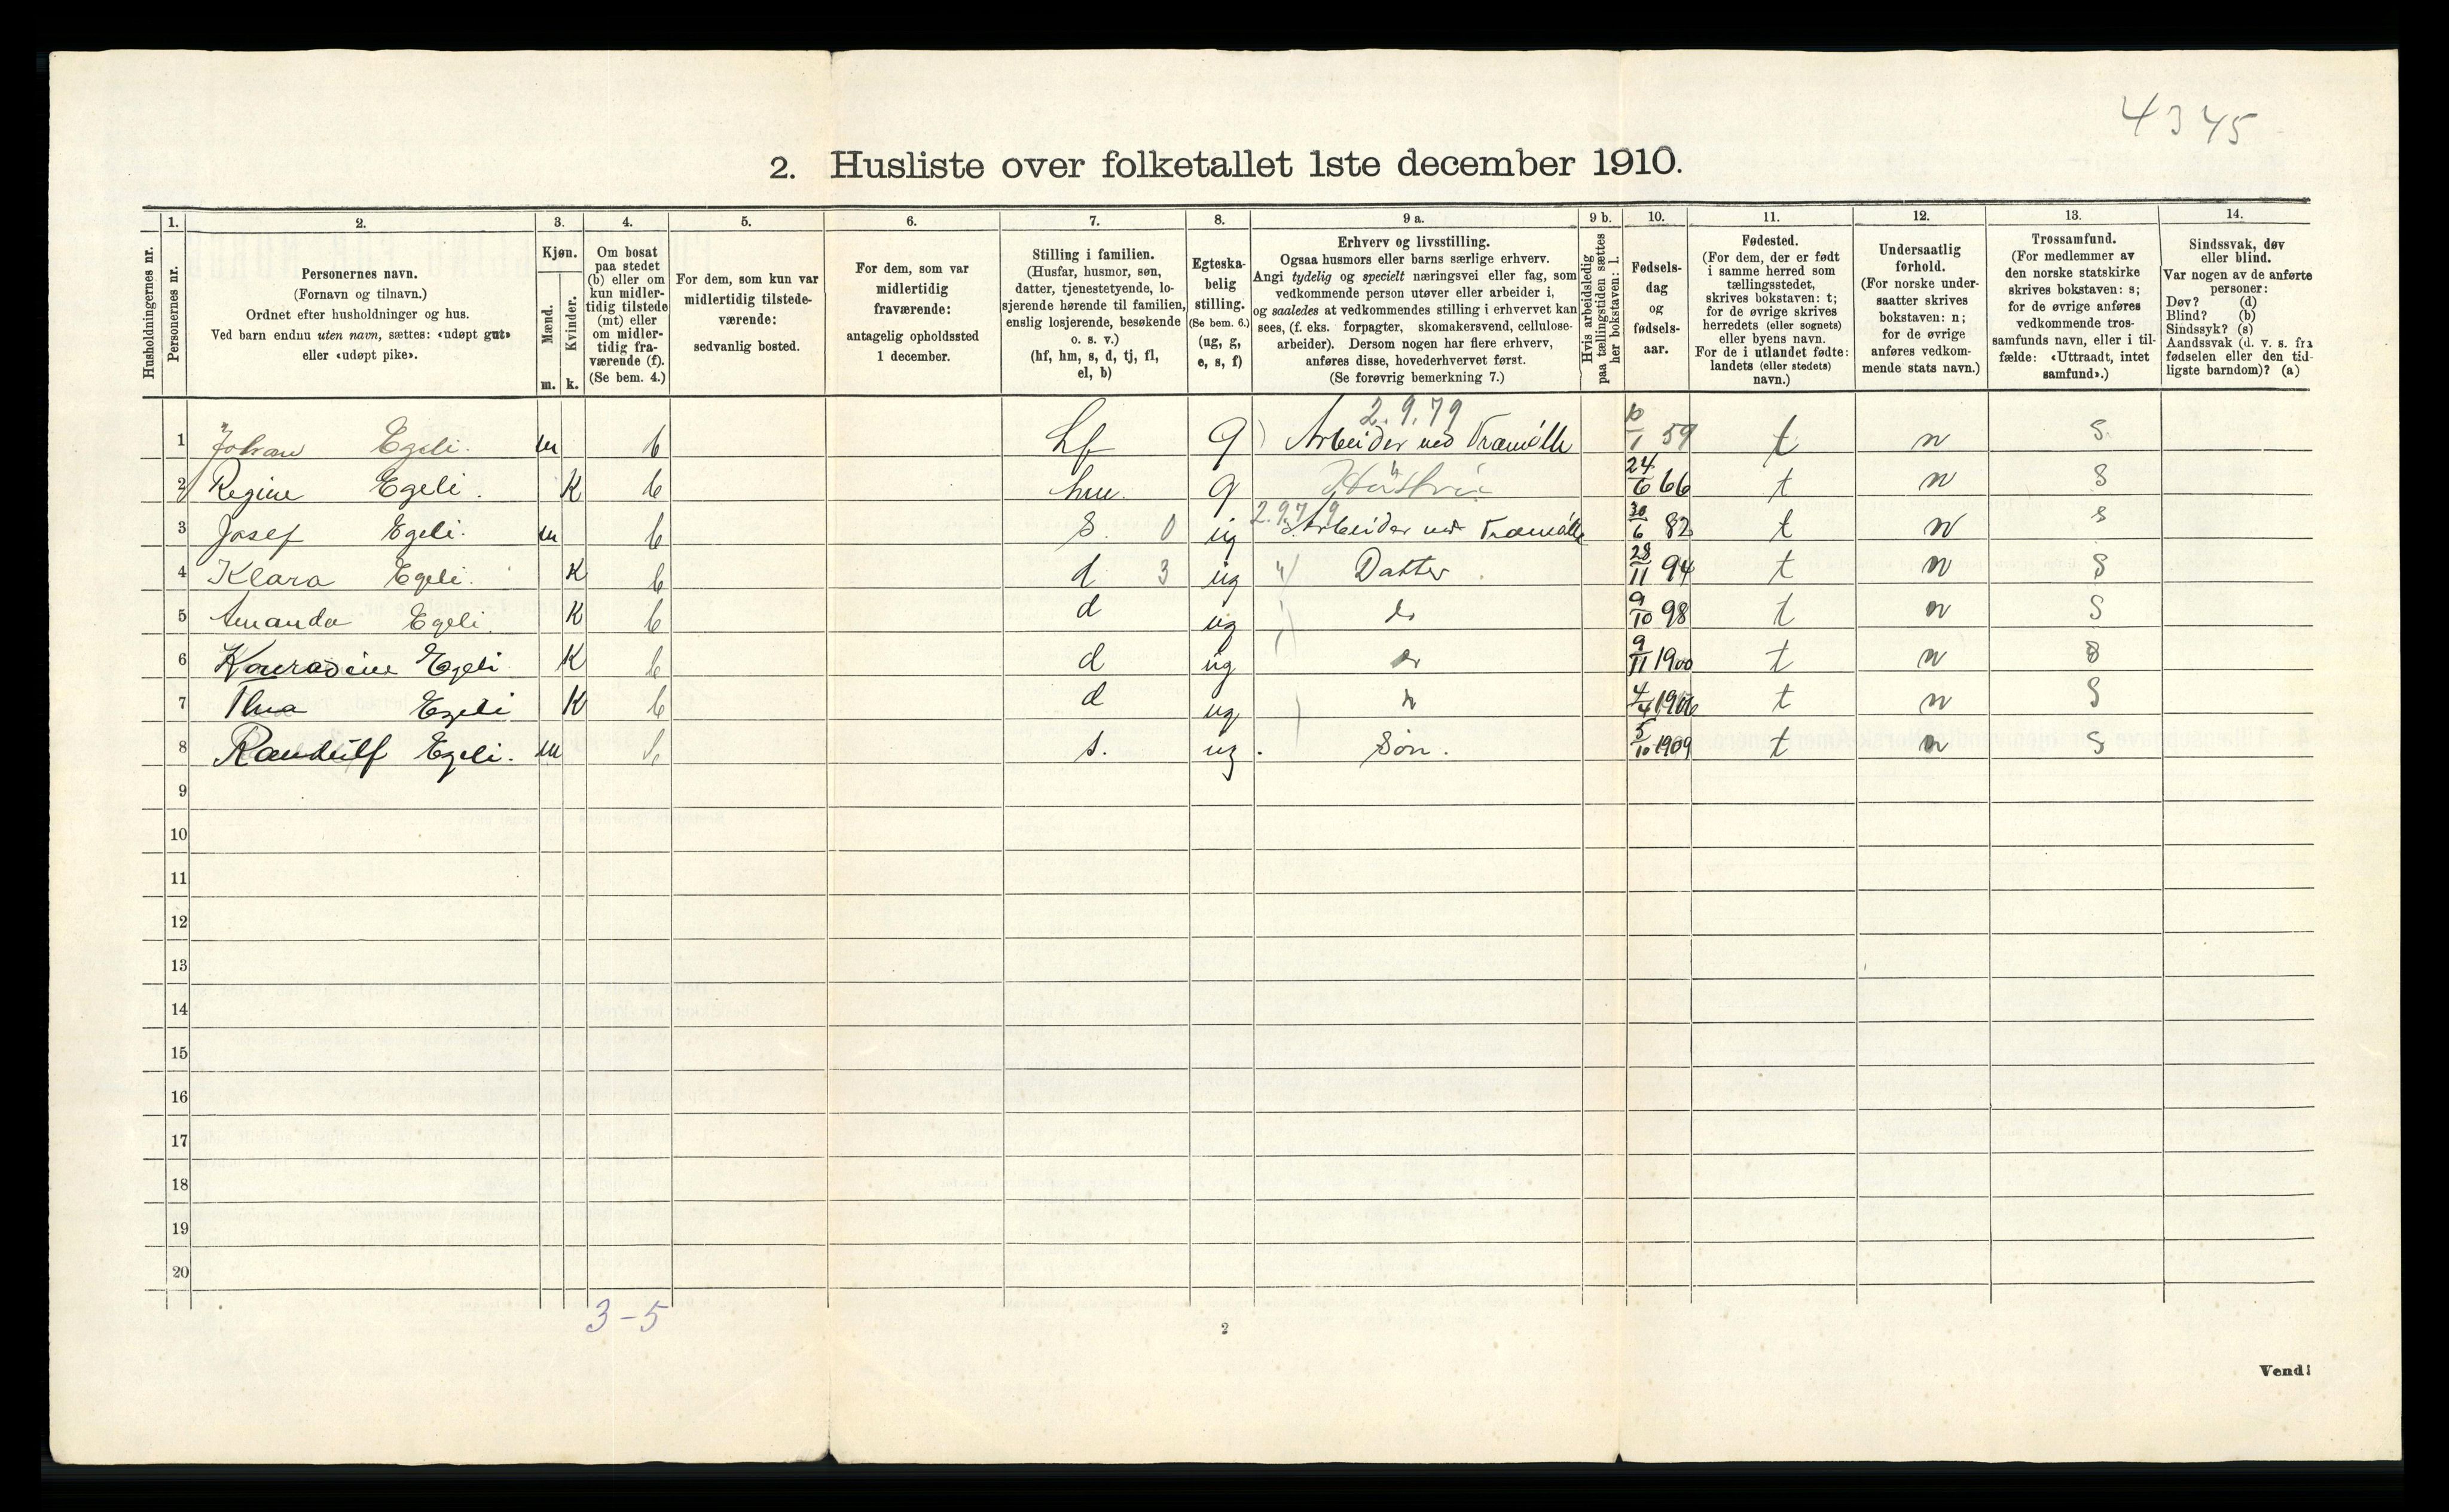 4345
2. Husliste over folketallet 1ste december 1910.
Husholdningernes nr.
1. Personernes nr.
2. Personernes navn.
(Fornavn og tilnavn.)
Ordnet efter husholdninger og hus.
Ved barn endnu uten navn, sættes: «udøpt gut»
eller «udøpt pike».
3. Kjøn.
Mænd. m.
Kvinder. k.
4. Om bosat
paa stedet
(b) eller om
kun midler-
tidig tilstede
(mt) eller
om midler-
tidig fra-
værende (f).
(Se bem. 4.)
5. For dem, som kun var
midlertidig tilstede-
værende:
sedvanlig bosted.
6. For dem, som var
midlertidig
fraværende:
antagelig opholdssted
1 december.
7. Stilling i familien.
(Husfar, husmor, søn,
datter, tjenestetyende, lo-
sjerende hørende til familien,
enslig losjerende, besøkende
o. s. v.)
(hf, hm, s, d, tj, fl,
el, b)
8. Egteska-
belig
stilling.
(Se bem. 6.)
(ug, g,
e, s, f)
9 a. Erhverv og livsstilling.
Ogsaa husmors eller barns særlige erhverv.
Angi tydelig og specielt næringsvei eller fag, som
vedkommende person utøver eller arbeider i,
og saaledes at vedkommendes stilling i erhvervet kan
sees, (f. eks. forpagter, skomakersvend, cellulose-
arbeider). Dersom nogen har flere erhverv,
anføres disse, hovederhvervet først.
(Se forøvrig bemerkning 7.)
9 b. Hvis arbeidsledig
paa tællingstiden sættes
her bokstaven: l.
10. Fødsels-
dag
og
fødsels-
aar.
11. Fødested.
(For dem, der er født
i samme herred som
tællingsstedet,
skrives bokstaven: t;
for de øvrige skrives
herredets (eller sognets)
eller byens navn.
For de i utlandet fødte:
landets (eller stedets)
navn.)
12. Undersaatlig
forhold.
(For norske under-
saatter skrives
bokstaven: n;
for de øvrige
anføres vedkom-
mende stats navn.)
13. Trossamfund.
(For medlemmer av
den norske statskirke
skrives bokstaven: s;
for de øvrige anføres
vedkommende tros-
samfunds navn, eller i til-
fælde: «Uttraadt, intet
samfund».)
14. Sindssvak, døv
eller blind.
Var nogen av de anførte
personer:
Døv? (d)
Blind? (b)
Sindssyk? (s)
Aandssvak (d. v. s. fra
fødselen eller den tid-
ligste barndom)? (a)
2.9.79
1 Johan Egeli. m b hf g Arbeider ved Træmølle 10/1 59 t n s
2 Regine Egeli. K b hm. g 24/6 66 t n s
2.9.79
3 Josef Egeli. m b s. 0 ug Arbeider ved Træmølle 30/6 82 t n s
4 Klara Egeli. K b d 3 ug Datter. 28/11 94 t n s
5 Amanda Egeli. K b d ug do 9/10 98 t n s
6 Konradine Egeli K b d ug do 9/11 1900 t n s
7 Egeli K b d ug 4/4 1906 t n s
8 Randulf Egeli. m b s. ug. Søn. 5/10 1909 t n s
9
10
11
12
13
14
15
16
17
18
19
20
3-5
2
Vend!